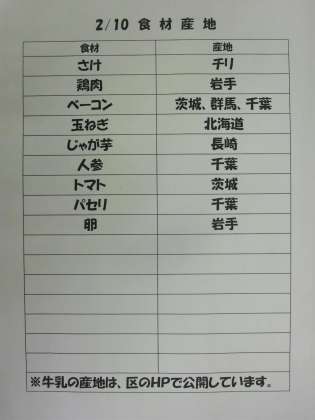 2/10 食材産地
食材 産地
さけ チリ
鶏肉 岩手
ベーコン 茨城、群馬、千葉
玉ねぎ 北海道
じゃが芋 長崎
人参 千葉
トマト 茨城
パセリ 千葉
卵 岩手
※牛乳の産地は、区のHPで公開しています。